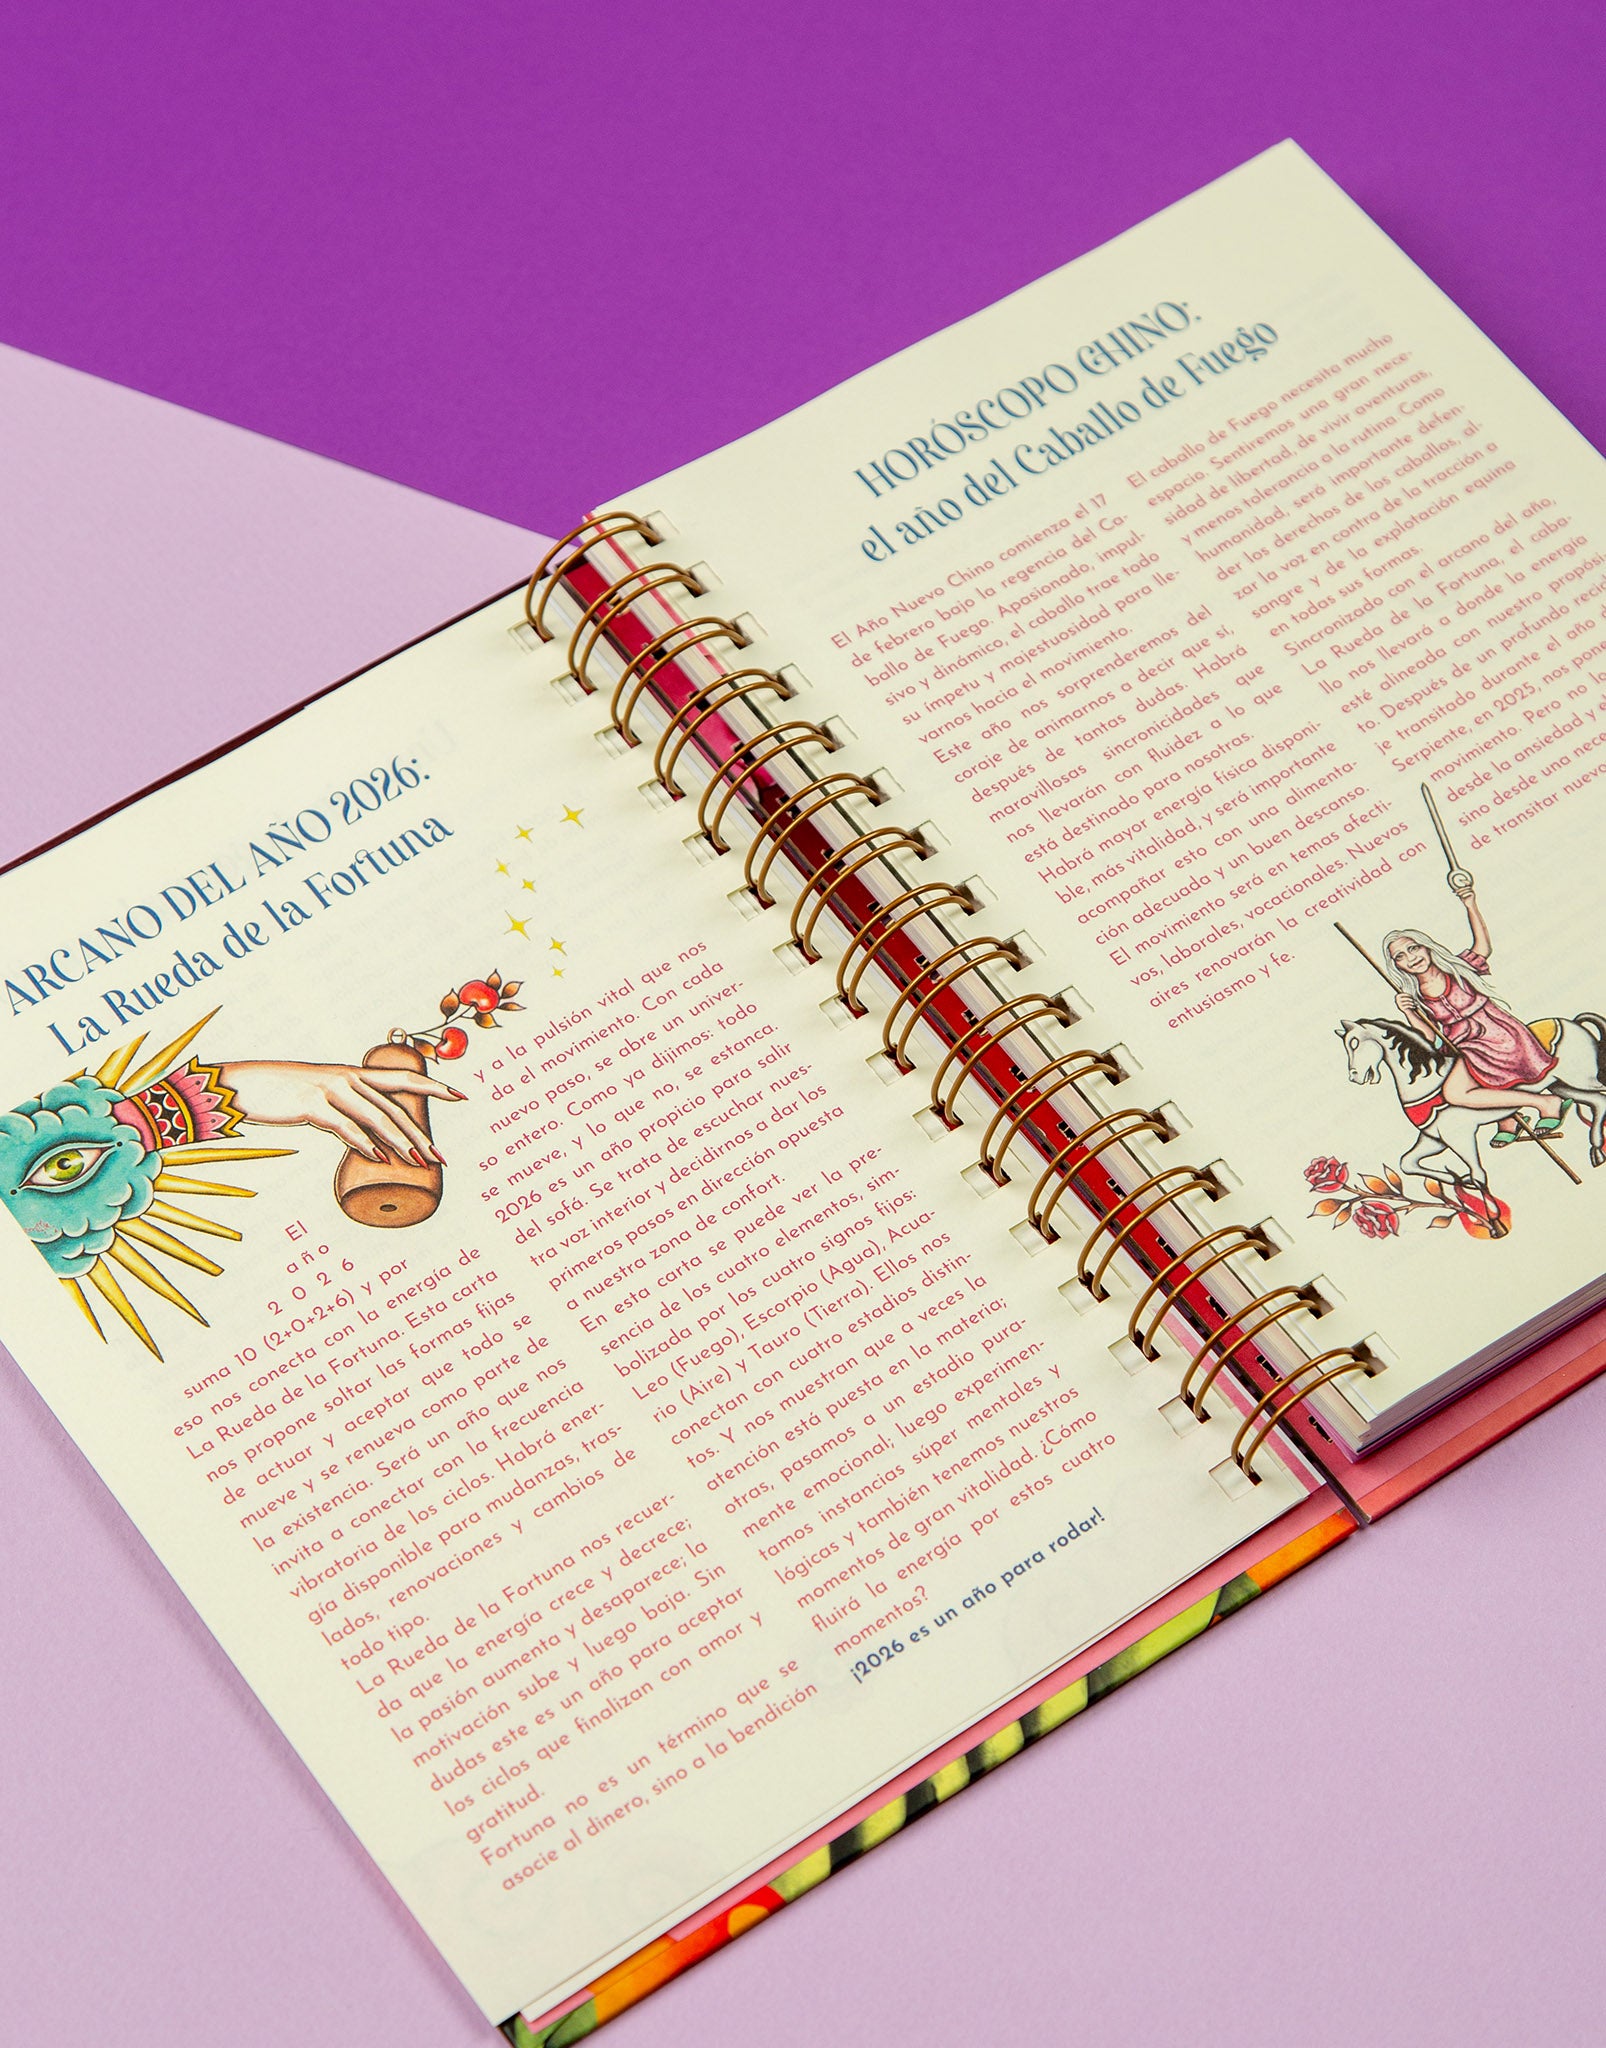 ARCANO DEL AÑO 2026:
La Rueda de la Fortuna
El
año
2026
suma 10 (2+0+2+6) y por
eso nos conecta con la energía de
La Rueda de la Fortuna. Esta carta
nos propone soltar las formas fijas
de actuar y aceptar que todo se
mueve y se renueva como parte de
la existencia. Será un año que nos
invita a conectar con la frecuencia
vibratoria de los ciclos. Habrá ener-
gía disponible para mudanzas, tras-
lados, renovaciones y cambios de
todo tipo.
La Rueda de la Fortuna nos recuer-
da que la energía crece y decrece;
la pasión aumenta y desaparece; la
motivación sube y luego baja. Sin
dudas este es un año para aceptar
los ciclos que finalizan con amor y
gratitud.
Fortuna no es un término que se
asocie al dinero, sino a la bendición
y a la pulsión vital que nos
da el movimiento. Con cada
nuevo paso, se abre un univer-
so entero. Como ya dijimos: todo
se mueve, y lo que no, se estanca.
2026 es un año propicio para salir
del sofá. Se trata de escuchar nues-
tra voz interior y decidirnos a dar los
primeros pasos en dirección opuesta
a nuestra zona de confort.
En esta carta se puede ver la pre-
sencia de los cuatro elementos, sim-
bolizada por los cuatro signos fijos:
Leo (Fuego), Escorpio (Agua), Acua-
rio (Aire) y Tauro (Tierra). Ellos nos
conectan con cuatro estadios distin-
tos. Y nos muestran que a veces la
atención está puesta en la materia;
otras, pasamos a un estadio pura-
mente emocional; luego experimen-
tamos instancias súper mentales y
lógicas y también tenemos nuestros
momentos de gran vitalidad. ¿Cómo
fluirá la energía por estos cuatro
momentos?
¡2026 es un año para rodar!
HORÓSCOPO CHINO:
el año del Caballo de Fuego
El Año Nuevo Chino comienza el 17
de febrero bajo la regencia del Ca-
ballo de Fuego. Apasionado, impul-
sivo y dinámico, el caballo trae todo
su ímpetu y majestuosidad para lle-
varnos hacia el movimiento.
Este año nos sorprenderemos del
coraje de animarnos a decir que sí,
después de tantas dudas. Habrá
maravillosas sincronicidades que
nos llevarán con fluidez a lo que
está destinado para nosotras.
Habrá mayor energía física disponi-
ble, más vitalidad, y será importante
acompañar esto con una alimenta-
ción adecuada y un buen descanso.
El movimiento será en temas afecti-
vos, laborales, vocacionales. Nuevos
aires renovarán la creatividad con
entusiasmo y fe.
El caballo de Fuego necesita mucho
espacio. Sentiremos una gran nece-
sidad de libertad, de vivir aventuras,
y menos tolerancia a la rutina. Como
humanidad, será importante defen-
der los derechos de los caballos, al-
zar la voz en contra de la tracción a
sangre y de la explotación equina
en todas sus formas.
Sincronizado con el arcano del año,
La Rueda de la Fortuna, el caba-
llo nos llevará a donde la energía
esté alineada con nuestro propósi-
to. Después de un profundo
je transitado durante el año
Serpiente, en 2025, nos
movimiento. Pero no
desde la ansiedad y
sino desde una
de transitar